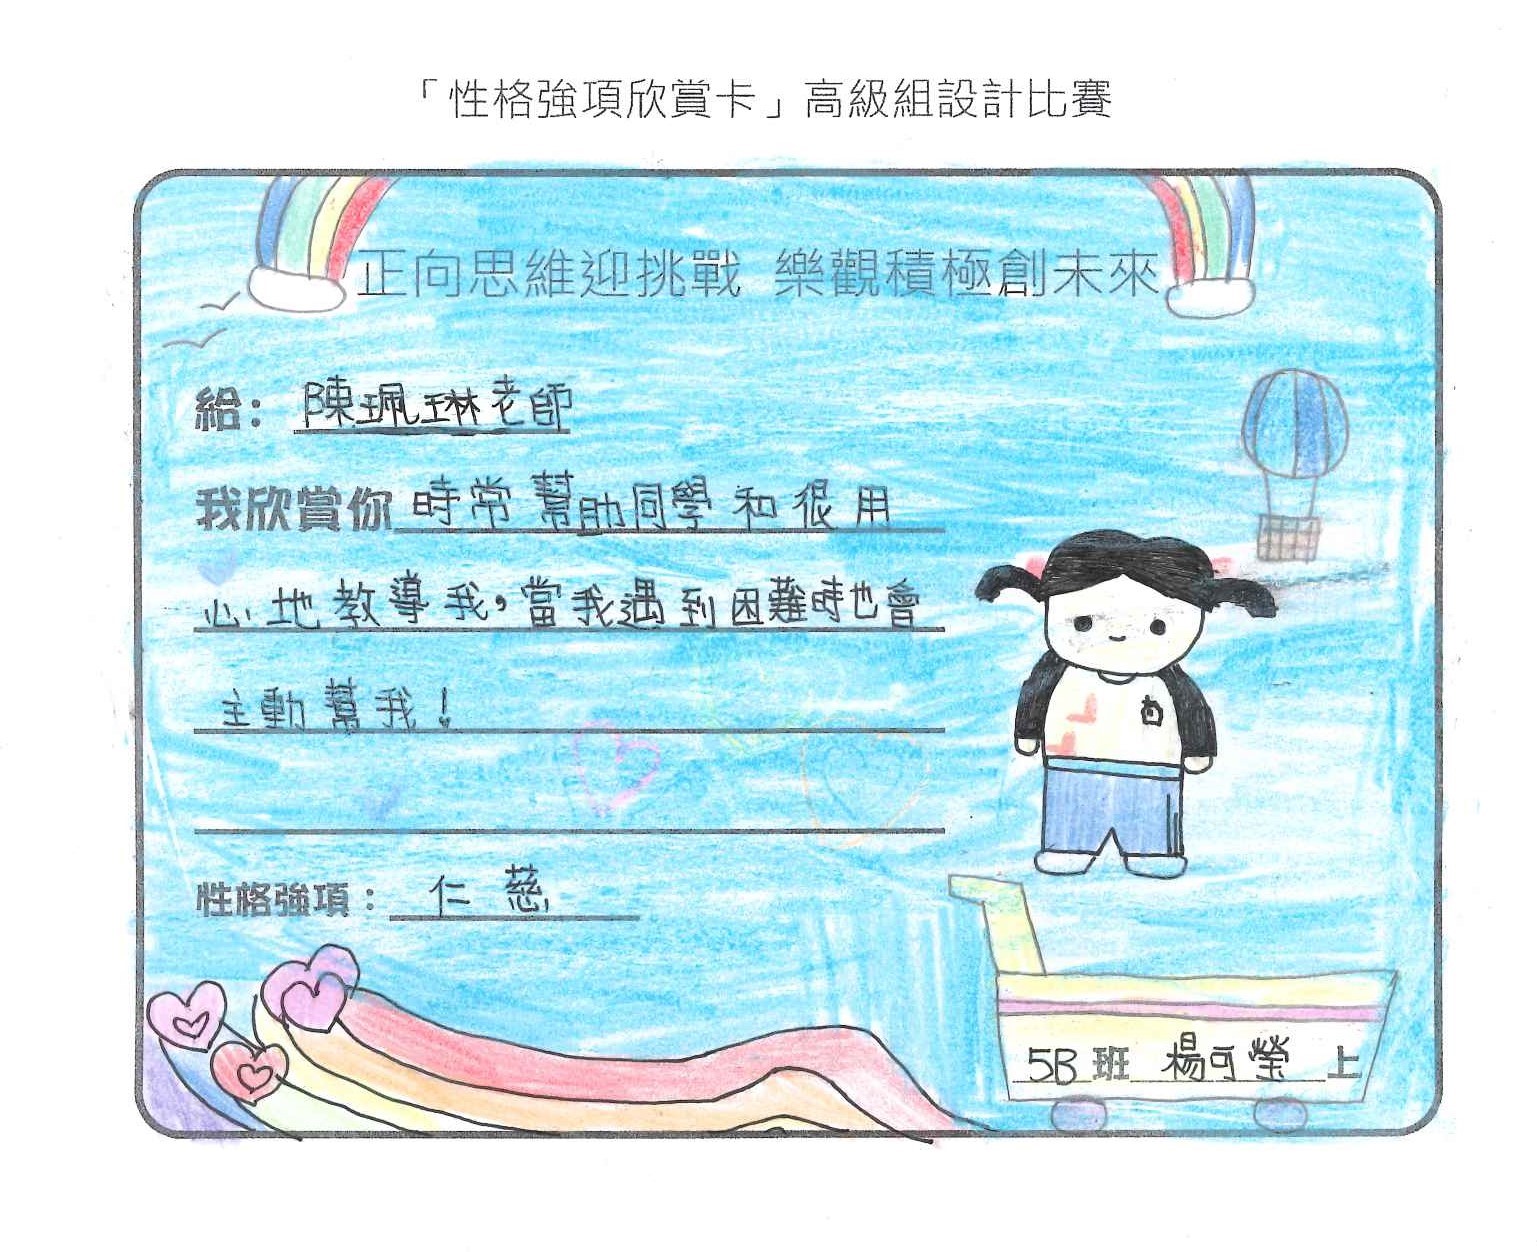 「性格強項欣賞卡」高級組設計比賽
正向思維迎挑戰 樂觀積極創未來
給：陳珮琳老師
我欣賞你時常幫助同學和很用
心地教導我，當我遇到困難時也會
主動幫我！
性格強項：仁慈
5B班 楊可瑩 上